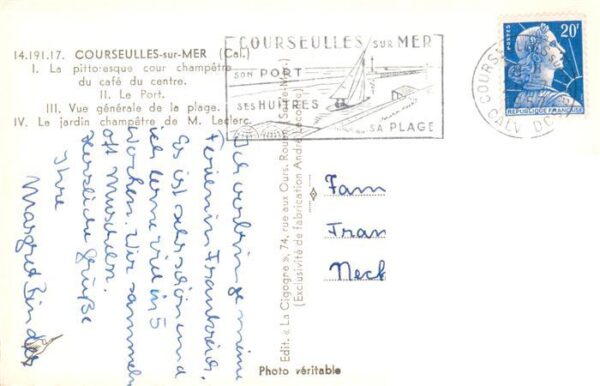 14.191.17. COURSEULLES-sur-MER (Cal.)
I. La pittoresque cour champêtre
du café du centre.
II. Le Port.
III. Vue générale de la plage.
IV. Le jardin champêtre de M. Leclerc.
COURSEULLES SUR MER
SON PORT
SES HUITRES
SA PLAGE
POSTES
20F
REPUBLIQUE FRANÇAISE
Ich verbringe meine
Ferien in Frankreich.
Es ist sehr schön und
ich lerne viel in 5
Wochen. Wir sammeln
oft Muscheln.
Herzliche Grüße
Ihre
Margret Binder
Edit. « La Cigogne », 74, rue aux Ours. Rouen
(Exclusivité de fabrication André Leconte)
Fam
Fran
Neck
Photo véritable